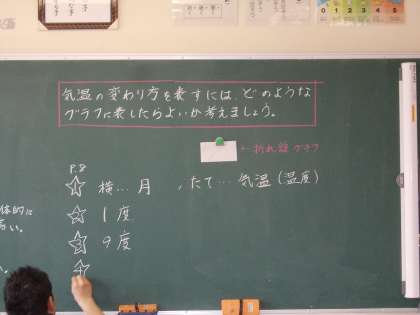 気温の変わり方を表すには、どのような
グラフに表したらよいか考えましょう。
←折れ線グラフ
P.8
1 横…月 、たて…気温(温度)
2 1度
3 9度
4
体的に
0 1 2 3 4 5